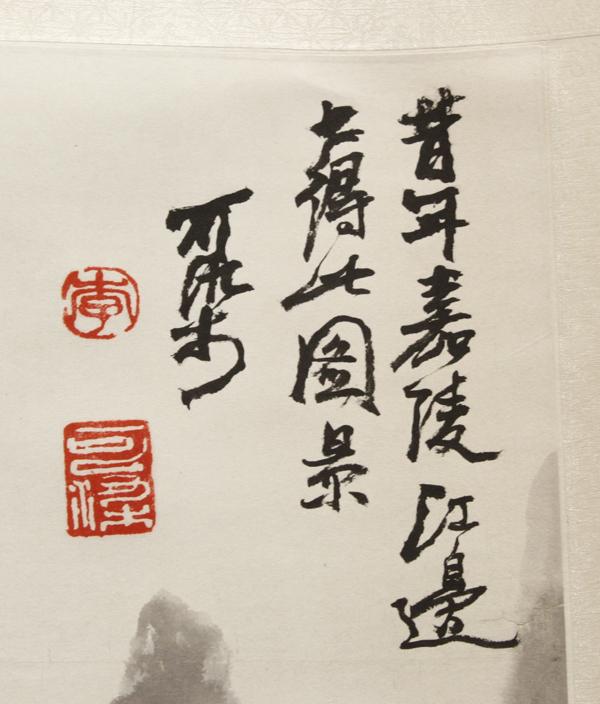 昔年嘉陵江邊
上得此圖景
可染
李
可染